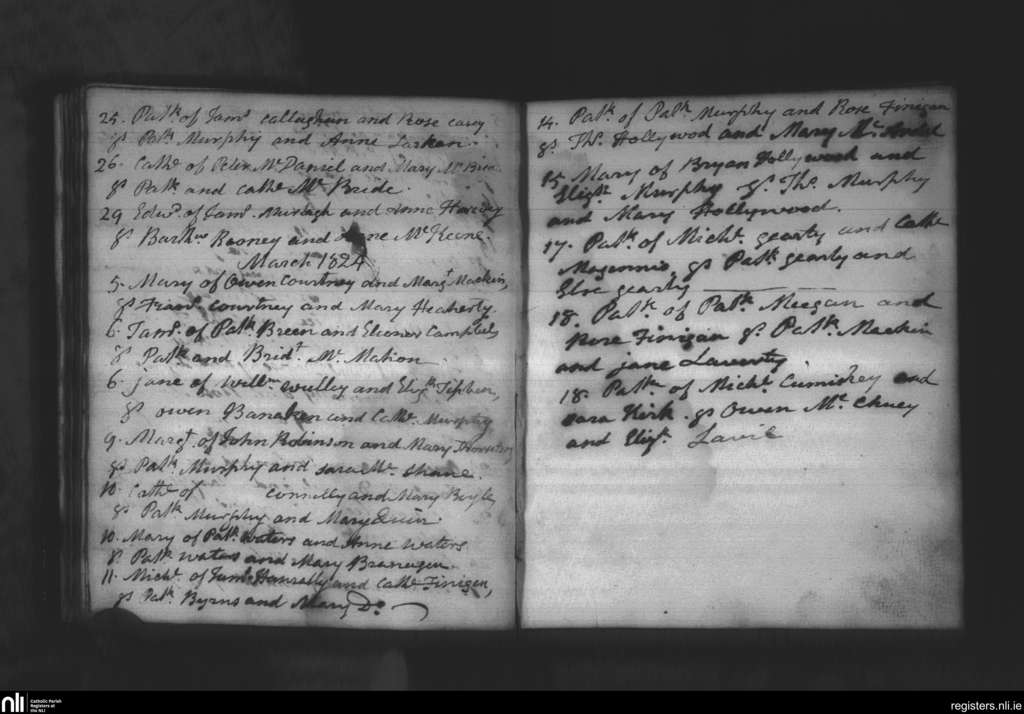 25. Patk of Jams Callaghan and Rose Carey
gs Patk Murphy and Anne Larkan.
26. Cathe of Peter Mc Daniel and Mary Mc
gs Patk and Cathe Mc Bride.
29 Edwd of Jams. Murtagh and Anne
gs Barthw Rooney and Anne Mc Keene.
March 1824
5. Mary of Owen Courtney and Margt Mackin,
gs Frans Courtney and Mary Heaherty
6. Jams. of Patk Breen and Eleoner Campbel,
gs Patk and Bridt. Mc Mahon
6. Jane of Willm and Elizth
gs Owen and Cathe Murphy
9. Margt. of John Robinson and Mary
gs Patk Murphy and Sara Mc Shane.
10. Cathe of Connelly and Mary Boyle,
gs Patk Murphy and Mary Quin.
10. Mary of Patk Waters and Anne Waters
gs Patk Waters and Mary Branagen.
11. Michl. of Jams and Cathe Finigen,
gs Patk Byrns and Mary Do
14. Patk of Patk Murphy and Rose Finigan
gs. Ths. Hollywood and Mary Mc
15. Mary of Bryan Hollywood and
Elizth. Murphy gs Ths. Murphy
and Mary Hollywood.
17. Patk of Michl. Gearty and Cathe
Magennis, gs Patk Gearty and
Gearty
18. Patk of Patk Meegan and
Rose Finigan gs. Patk Mackin
and Jane Laverty.
18. Patk of Michl Cumiskey and
Sara Kirk. gs Owen Mc
and Elizth.
nli
Catholic Parish
Registers at
the NLI
registers.nli.ie